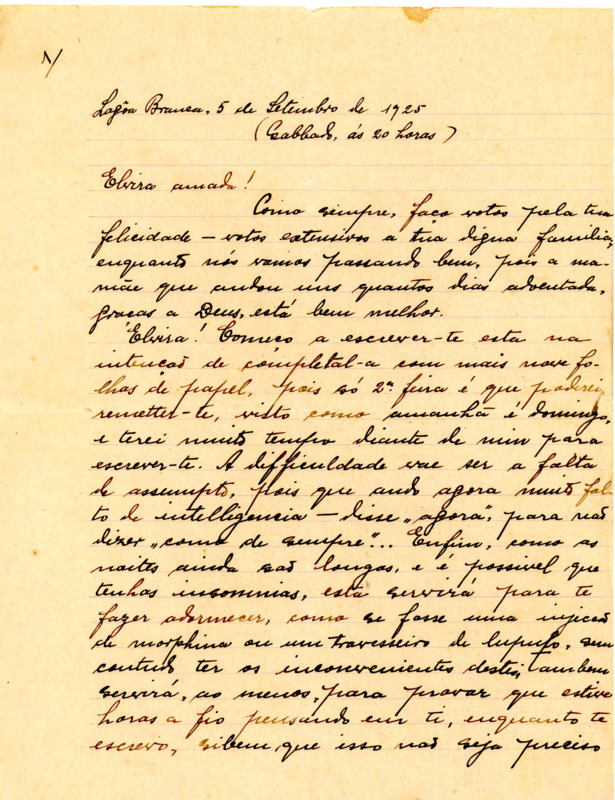 1/
Lagôa Branca, 5 de Setembro de 1925
(Sabbado, ás 20 horas)
Elvira amada!
Como sempre, faço votos pela tua
felicidade – votos extensivos a tua digna familia,
enquanto nós vamos passando bem, pois a ma-
mãe que andou uns quantos dias adoentada,
graças a Deus, está bem melhor.
Elvira! Começo a escrever-te esta na
intenção de completal-a com mais nove fo-
lhas de papel, pois só 2ª feira é que poderei
remetter-te, visto como amanhã é domingo,
e terei muito tempo diante de mim para
escrever-te. A difficuldade vae ser a falta
de assumpto, pois que ando agora muito fal-
to de intelligencia – disse „agora", para não
dizer „como de sempre"... Enfim, como as
noites ainda são longas, e é possivel que
tenhas insomnias, esta servirá para te
fazer adormecer, como se fosse uma injeção
de morphina ou um travesseiro de lupulo, sem
contudo ter os inconvenientes destes; tambem
servirá, ao menos, para provar que estive
horas a fio pensando em ti, enquanto te
escrevo, sibem que isso não seja preciso